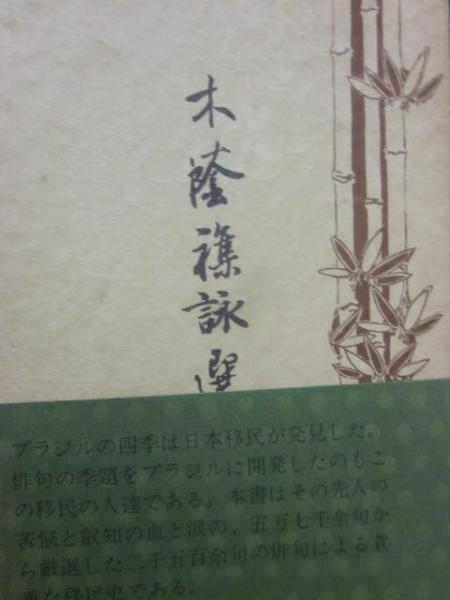 木蔭襍詠選
ブラジルの四季は日本移民が発見した。
俳句の季題をブラジルに開発したのもこ
の移民の人達である。本書はその先人の
苦悩と叡知の血と涙の、五万七千余句か
ら厳選した二千五百余句の俳句による貴
重な移民史である。